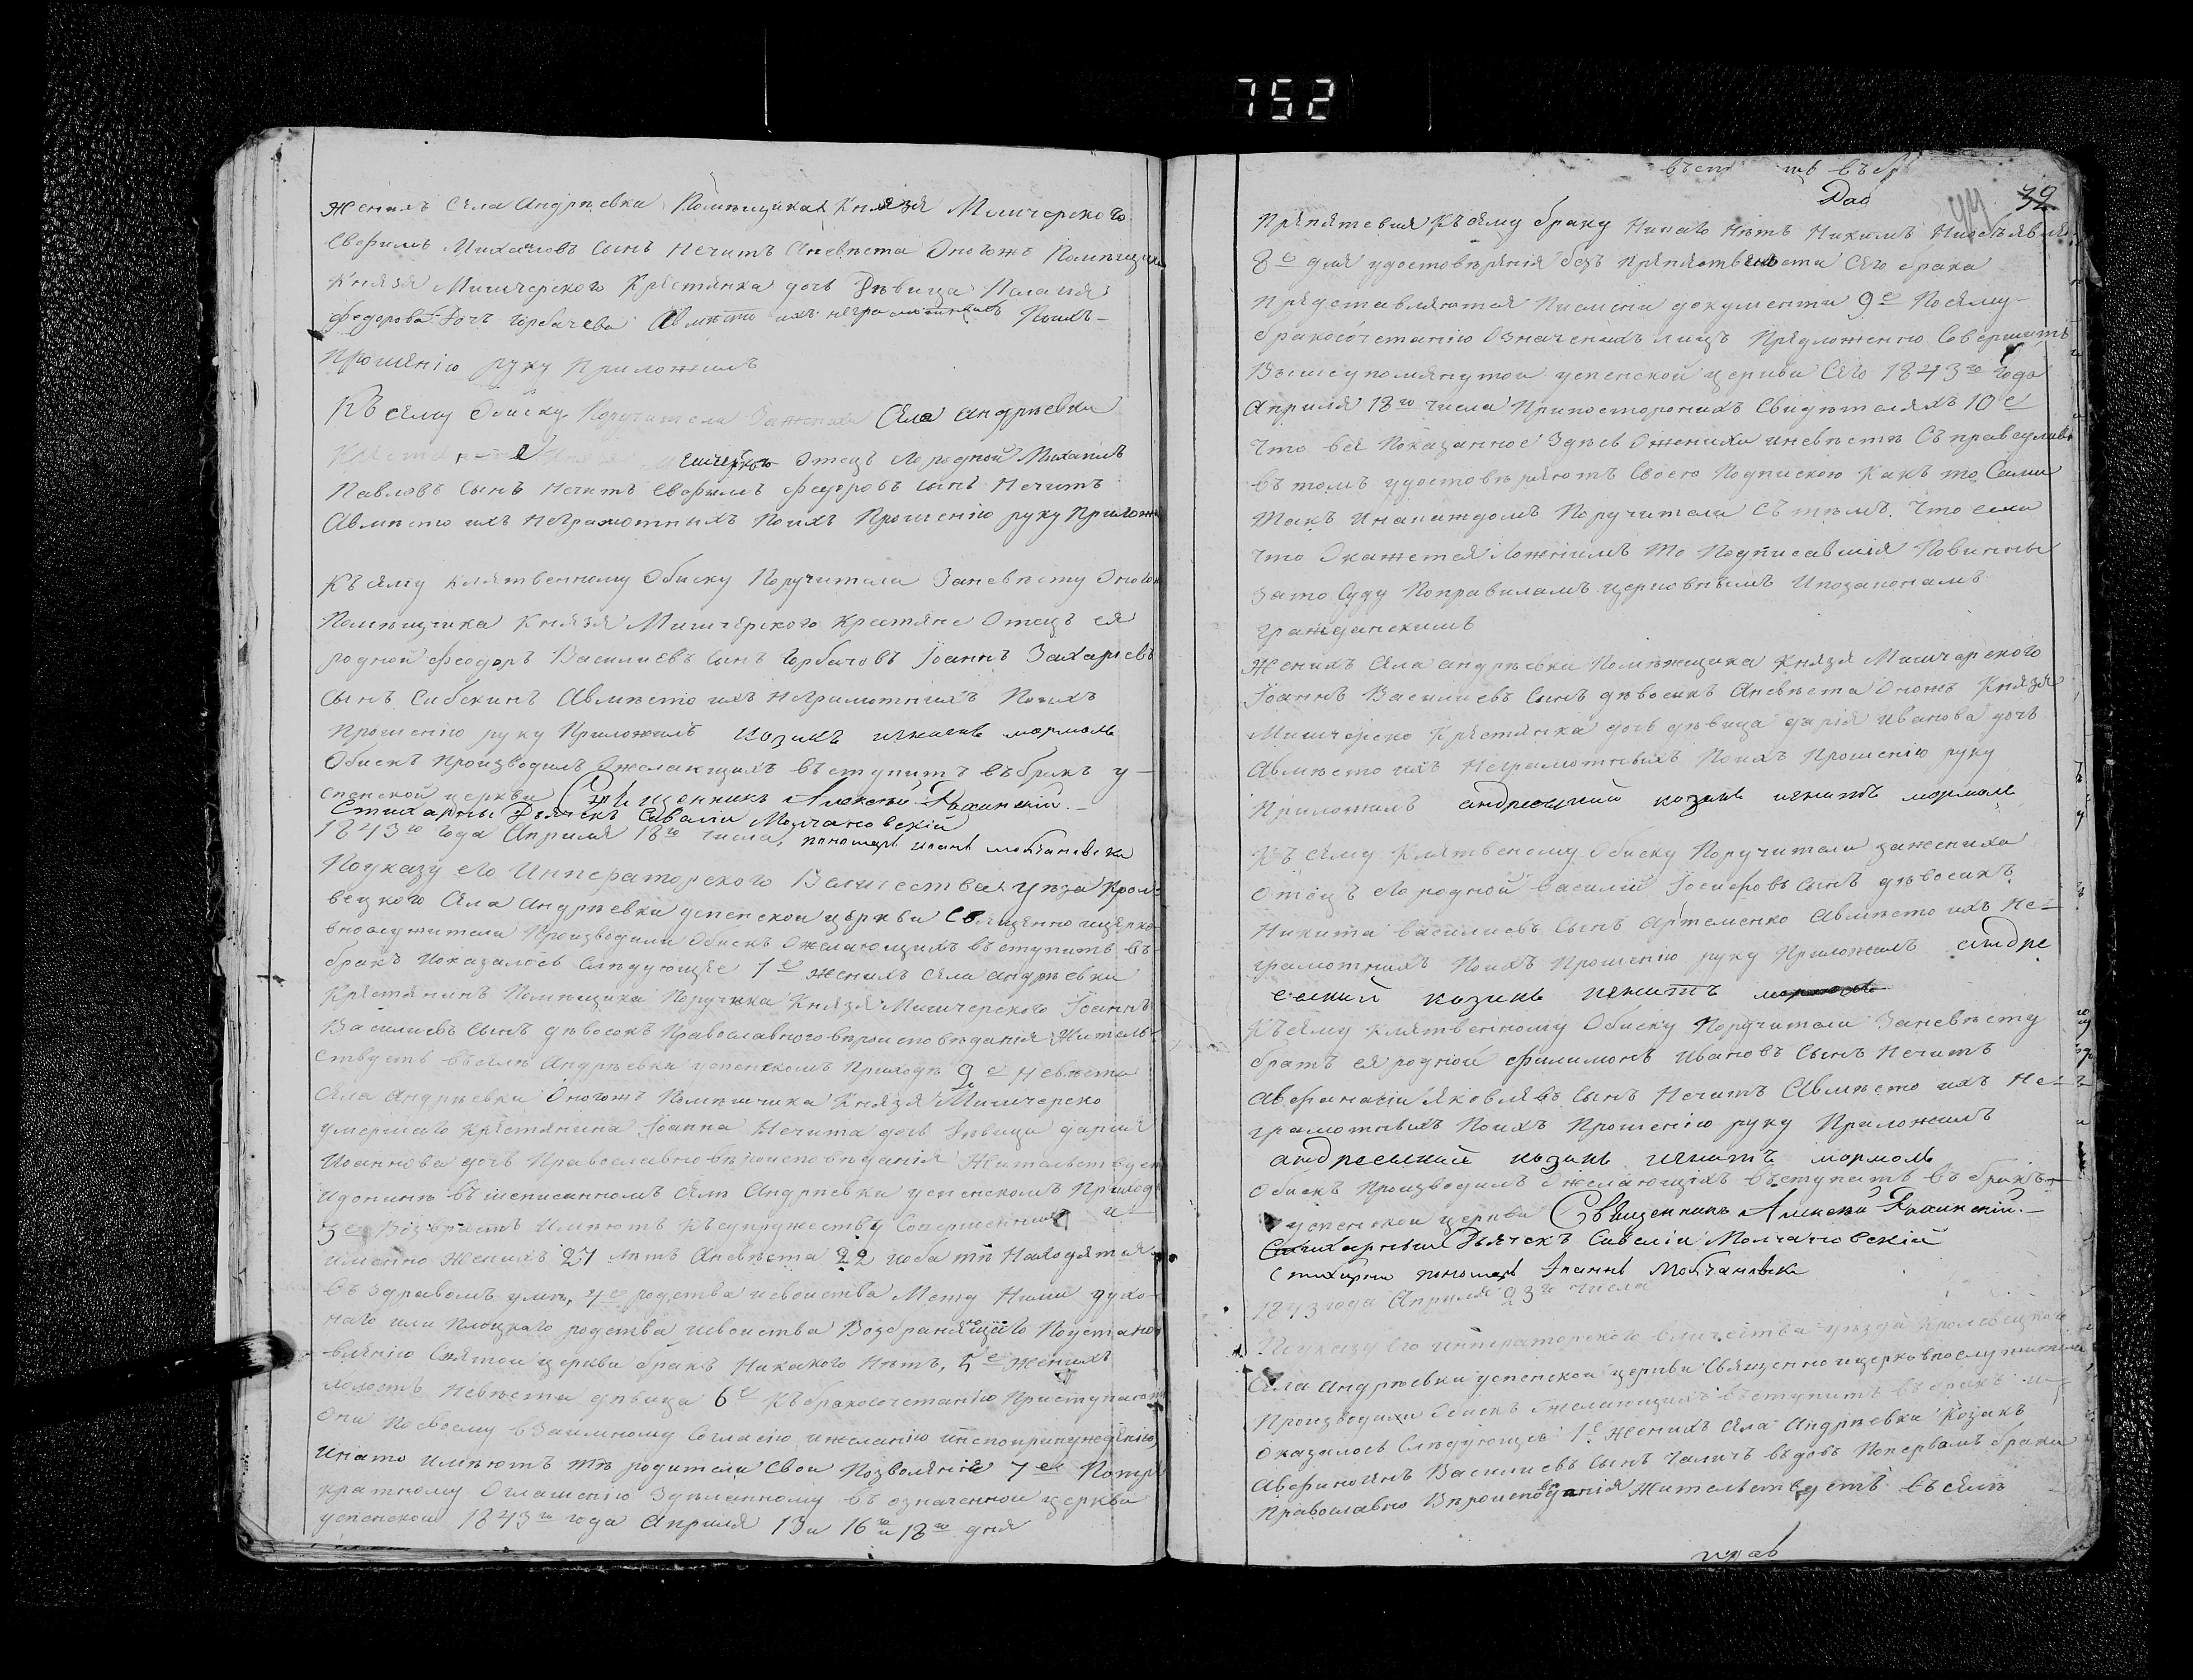 752
Женихъ Села Андрѣевки Помѣщика Князя Мишчерского
Евфимъ Михаиловъ Сынъ Нечитъ Аневѣста Оногожъ Помѣщика
Князя Мишчерского Крестянка дочь Дѣвица Пелагия
Федорова Дочь Горбачева Авмѣсто ихъ неграмотныхъ Поихъ
Прошенію руку Приложилъ
Къ сему Обиску Поручители Зажениха Села Андрѣевки
Отецъ Его родной Михаилъ
Павловъ Сынъ Нечитъ Евфимъ Федоровъ Сынъ Нечитъ
Авмѣсто ихъ Неграмотныхъ Поихъ Прошенію руку Приложи
Къ сему Клятвенному Обиску Поручители Заневѣсту Оного
Помѣщика Князя Мишчерского Крестяне Отецъ ея
родной Феодоръ Василиевъ Сынъ Горбачовъ Іоаннъ Захариевъ
Сынъ Сибекинъ Авмѣсто ихъ Неграмотнихъ Поихъ
Прошенію руку Приложилъ козакъ игнатъ мормоль
Обискъ Производилъ Ожелающихъ вступитъ въбракъ у-
спенской церкви Священникъ Алексей
Стихарны Дьячекъ Савелии Молчановский
1843го года Априля 18го числа, пономарь иванъ молчановски
Поуказу его Инператорского Величества уѣзда Крол-
вецкого Села Андрѣевки успенской цѣркви Священно ицерко-
вно служители Производили Обискъ Ожелающихъ въступить въ-
бракъ Показалось Слѣдующее 1е Женихъ села Андрѣевки
Крестянинъ Помѣщика Поручика Князя Мишчерского Іоаннъ
Василиевъ Сынъ дѣвосокъ Православного вѣроисповѣданія Житель-
ствуетъ въселѣ Андрѣевки успенскомъ Приходѣ 2е Невѣста
Села Андрѣевки Оногожъ Помѣшчика Князя Мишчерско
умершаго Крестянина Іоанна Нечита дочь Дѣвица дария
Иоаннова дочь Православно вѣроисповѣданія Жительствует
идонинѣ въшеписанномъ селѣ Андрѣевки успенскомъ Приход
3е Возврастъ Имѣютъ Къ супружеству Совершенний и
именно Женихъ 27 лѣтъ Аневѣста 22 иоба тѣ Находятся
въ здравомъ умѣ, 4е родства исвоиства Между Ними духо-
наго или Плоцкаго родства исвоиства Возбраняющаго Поустано
влянію Святой церкви бракъ Никакого Нѣтъ, 5е Женихъ
холостъ Невѣста дѣвица 6е Къ бракосочетанію Приступают
Они Посвоему взаимному Согласію ижеланію инепопринужденію,
Инато Имѣютъ тѣ родители Свои Позволяние 7е Потр
кратному Оглашению Здѣланному въ означенной церкви
успенской 1843го года Априля 13 и 16го и 18го дня
Дао
44
32
Препятсвия Къ сему браку Никаго Нѣтъ Никимъ
8е для удостовѣрянія безъ Препятственности Сего брака
Представляются Писмени документи 9е Посему-
бракосочетанію Означенихъ лицъ Предложенно Совершитъ
Вышеупомянутои успенской церкви Сего 1843го года
Априля 18го числа Припосторонихъ Свидѣтеляхъ 10е
Что все Показанное Здѣсь Оженихи иневѣстѣ Съправедливо
въ томъ удостовѣряютъ Своею Подпискою Какъ то Сами
Такъ Инапаждомъ Поручители Съ тѣмъ, Что если
Что Окажется Ложнимъ то Подписавшия Повинны
зато Суду Поправиламъ церковнымъ Ипозапонамъ
гражданскимъ
Женихъ Села андрѣевки Помѣнщика Князя Мишчерского
Іоаннъ Василиевъ Сынъ дѣвосикъ Аневѣста Оножъ Князя
Мишчерско Крестянка дочь дѣвица дарія Иванова дочь
Авмѣсто ихъ Неграмотныхъ Поихъ Прошенію руку
Приложилъ андреевский козакъ игнатъ мормоль
Къ сему Клятвеному Обиску Поручители зажениха
Отецъ его родной Василій Іосифовъ Сынъ дѣвосикъ
Никита василиевъ Сынъ Артеменко Авмѣсто ихъ Не-
грамотнихъ Поихъ Прошенію руку Приложилъ андре
евский козакъ игнатъ мормоль
Къ сему клятвенному Обиску Поручители Заневѣсту
братъ ея родной филимонъ Ивановъ Сынъ Нечитъ
Авфанасіи Яковлевъ Сынъ Нечитъ Авмѣсто ихъ Не-
грамотныхъ Поихъ Прошенію руку Приложилъ
андреевский козакъ игнатъ мормоль
Обискъ Производилъ Ожелающихъ въступитъ въ бракъ
успенской церкви Священникъ Алексей
Стихарный Дьячекъ Савелии Молчановский
Стихарни пономарь Іоаннъ Молчановски
1843 года Априля 23го числа
Поуказу Его императорского величества уѣзда Кролевецкого
Села Андрѣевки успенской церкви Священно ицерковнослужители
Производили Обискъ Ожелающихъ въступитъ въ бракъ и
Оказалось Слѣдующее 1е Женихъ Села Андрѣевки Козакъ
Авфиногенъ Василиевъ Сынъ Чаличъ въдовъ Попервомъ браки
Православно Вѣроисповѣданія Жительствуетъ въ селѣ